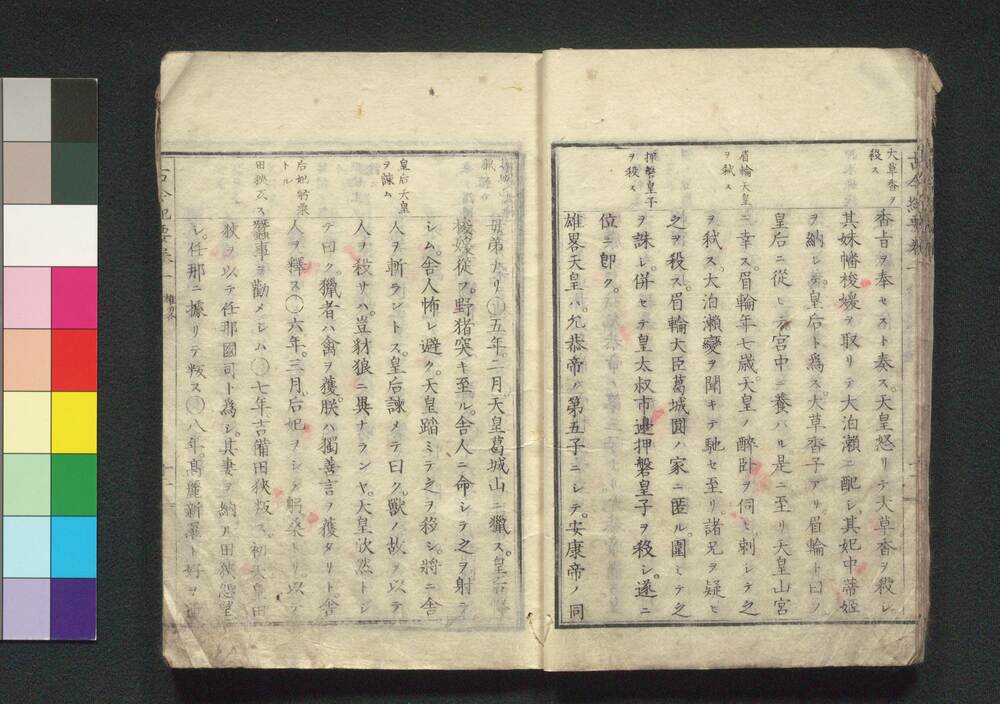 大草香ヲ
殺ス
香肯ヲ奉セスト奏ス。天皇怒リテ大草香ヲ殺シ
其妹幡梭媛ヲ取リテ大泊瀬ニ配シ。其妃中蒂姫
ヲ納レテ。皇后ト為ス大草香子アリ眉輪ト曰フ
皇后ニ從ヒテ宮中ニ養ハル是ニ至リ天皇山宮
眉輪天皇
ヲ弑ス
ニ幸ス。眉輪年七歳。天皇ノ醉卧ヲ伺ヒ刺シテ之
ヲ弑ス。大泊瀬變ヲ聞キテ馳セ至リ。諸兄ヲ疑ヒ
之ヲ殺ス。眉輪大臣葛城圓ノ家ニ匿ル。圍ミテ之
押磐皇子
ヲ殺ス
ヲ誅シ。併セテ皇太叔市邊押磐皇子ヲ殺シ。遂ニ
位ニ卽ク。
雄畧天皇ハ。允恭帝ノ第五子ニシテ。安康帝ノ同
母弟ナリ 五年。二月。天皇葛城山ニ獵ス。皇后
梭媛從フ。野猪突キ至ル。舎人ニ命シテ之ヲ射ラ
シム。舎人怖レ避ク。天皇踏ミテ之ヲ殺シ。將ニ舎
皇后天皇
ヲ諫ム
人ヲ斬ラントス。皇后諫メテ曰ク。獸ノ故ヲ以テ
人ヲ殺サハ。豈豺狼ニ異ナランヤ。天皇欣然トシ
テ曰ク。獵者ハ禽ヲ獲。朕ハ獨善言ヲ獲タリト。舎
后妃躬桑
トル
人ヲ釋ス 六年。三月。后妃ヲシテ躬桑トリ以テ
田狹反ス
蠶事ヲ勸メシム 七年。吉備田狹叛ス。初天皇田
狹ヲ以テ任那國司ト為シ。其妻ヲ納ル田狹怨望
シ。任那ニ據リテ叛ス 八年。髙麗新羅ト好ヲ